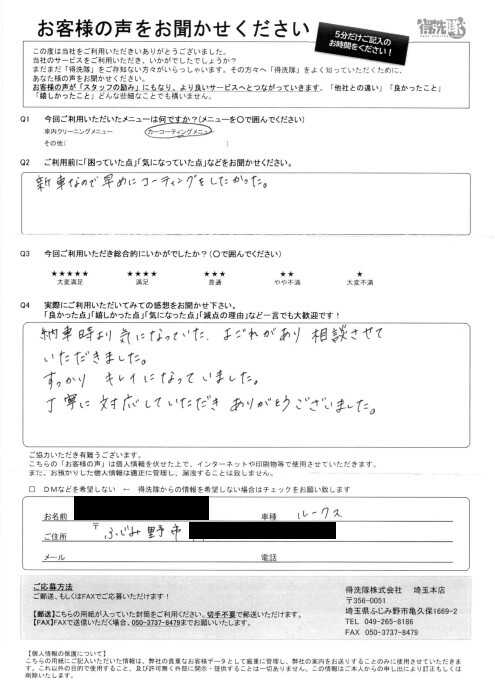 お客様の声をお聞かせください
5分だけご記入の
お時間をください！
得洗隊
この度は当社をご利用いただきありがとうございました。
当社のサービスをご利用いただき、いかがでしたでしょうか？
まだまだ「得洗隊」をご存知ない方々がいらっしゃいます。その方々へ「得洗隊」をよく知っていただくために、
あなた様の声をお聞かせください。
お客様の声が「スタッフの励み」にもなり、より良いサービスへとつながっていきます。「他社との違い」「良かったこと」
「嬉しかったこと」どんな些細なことでも構いません。
Q1 今回ご利用いただいたメニューは何ですか？(メニューを〇で囲んでください)
車内クリーニングメニュー カーコーティングメニュー
その他( )
Q2 ご利用前に「困っていた点」「気になっていた点」などをお聞かせください。
新車なので早めにコーティングをしたかった。
Q3 今回ご利用いただき総合的にいかがでしたか？(〇で囲んでください)
★★★★★ ★★★★ ★★★ ★★ ★
大変満足 満足 普通 やや不満 大変不満
Q4 実際にご利用いただいてみての感想をお聞かせ下さい。
「良かった点」「嬉しかった点」「気になった点」「減点の理由」など一言でも大歓迎です！
納車時より気になっていた、よごれがあり 相談させて
いただきました。
すっかり キレイになっていました。
丁寧に 対応していただき ありがとうございました。
ご協力いただき有難うございます。
こちらの「お客様の声」は個人情報を伏せた上で、インターネットや印刷物等で使用させていただきます。
また、お預かりした個人情報は適正に管理し、漏洩することは致しません。
□ DMなどを希望しない ← 得洗隊からの情報を希望しない場合はチェックをお願い致します
お名前 車種 ルークス
ご住所 〒 ふじみ野市
メール 電話
ご応募方法
ご郵送、もしくはFAXでご応募いただけます！
【郵送】こちらの用紙が入っていた封筒をご利用ください、切手不要で郵送いただけます。
【FAX】FAXで送信いただく場合、050-3737-8479までお願いいたします。
得洗隊株式会社 埼玉本店
〒356-0051
埼玉県ふじみ野市亀久保1669-2
TEL 049-265-8186
FAX 050-3737-8479
【個人情報の保護について】
こちらの用紙にご記入いただいた情報は、弊社の貴重なお客様データとして厳重に管理し、弊社の案内をお送りすることのみに使用させていただきま
す。これ以外の目的で使用すること、及び許可無く外部に開示・提供することは一切ありません。この情報はご本人からの申し出により訂正もしくは
削除いたします。